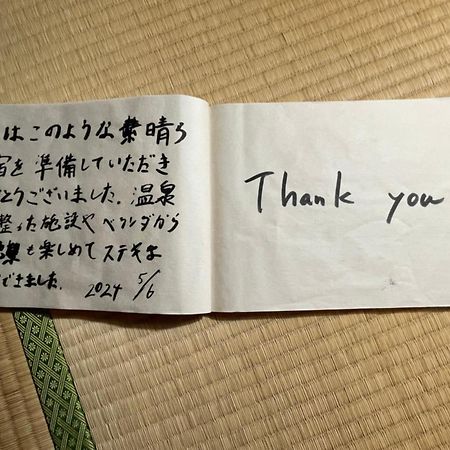 はこのような素晴ら
宿を準備していただき
とうございました。温泉
整った施設やベランダから
も楽しめてステキな
できました。
2024 5/6
Thank you